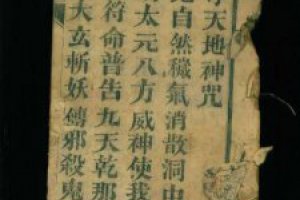 天地神咒
自然穢氣消散洞中
太元八方威神使我
符命普告九天乾那
大玄斬妖縛邪殺鬼